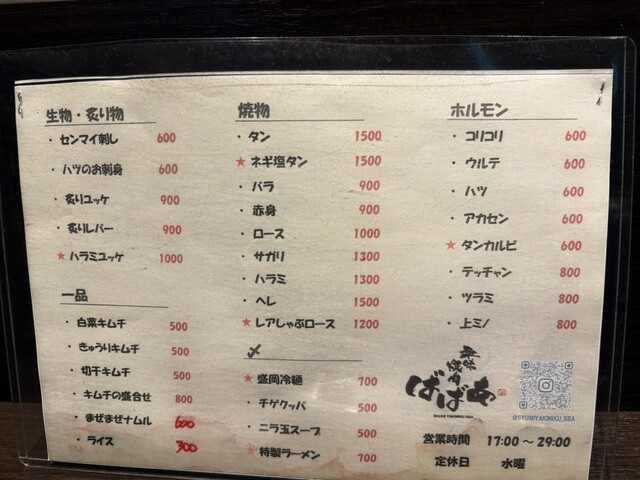 生物・炙り物
・センマイ刺し 600
・ハツのお刺身 600
・炙りユッケ 900
・炙りレバー 900
★ハラミユッケ 1000
一品
・白菜キムチ 500
・きゅうりキムチ 500
・切干キムチ 500
・キムチの盛合せ 800
・まぜまぜナムル 600
・ライス 300
焼物
・タン 1500
★ネギ塩タン 1500
・バラ 900
・赤身 900
・ロース 1000
・サガリ 1300
・ハラミ 1300
・ヘレ 1500
★レアしゃぶロース 1200
〆
★盛岡冷麺 700
・チゲクッパ 500
・ニラ玉スープ 500
★特製ラーメン 700
ホルモン
・コリコリ 600
・ウルテ 600
・ハツ 600
・アカセン 600
★タンカルビ 600
・テッチャン 800
・ツラミ 800
・上ミノ 800
ばばあ
@SYUMIYAKINIKU_BBA
営業時間 17:00～29:00
定休日 水曜